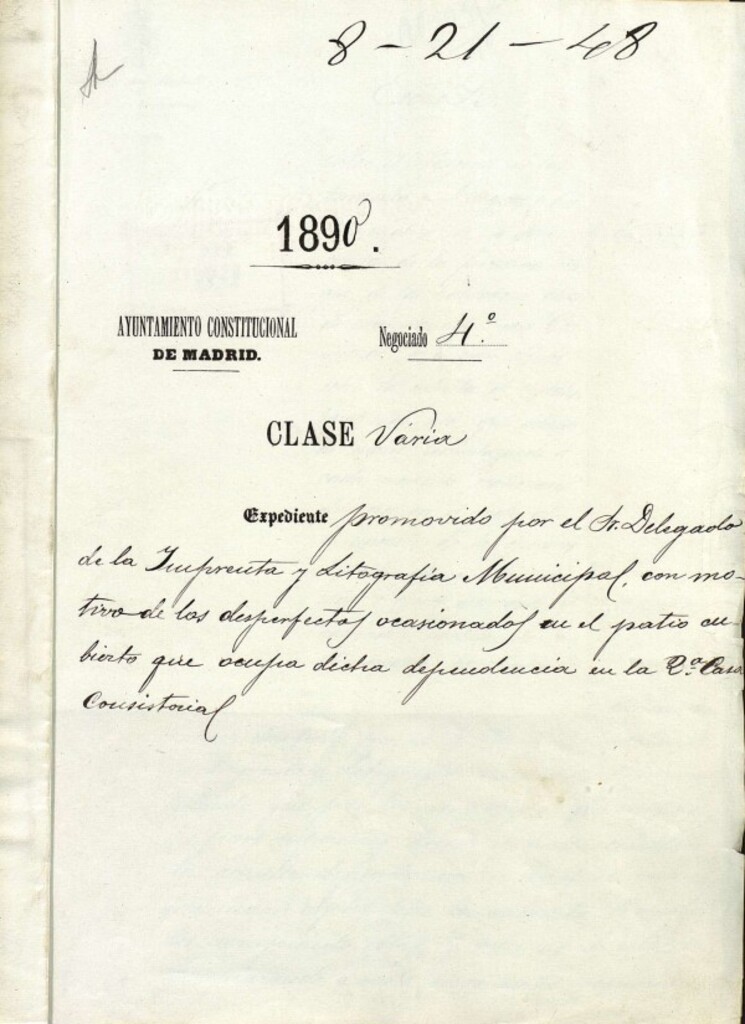 8 - 21 - 48
1890.
AYUNTAMIENTO CONSTITUCIONAL
DE MADRID.
Negociado 4.º
CLASE Vária
Expediente promovido por el Sr. Delegado
de la Imprenta y Litografía Municipal, con mo-
tivo de los desperfectos ocasionados en el patio cu-
bierto que ocupa dicha dependencia en la 2.ª Casa
Consistorial